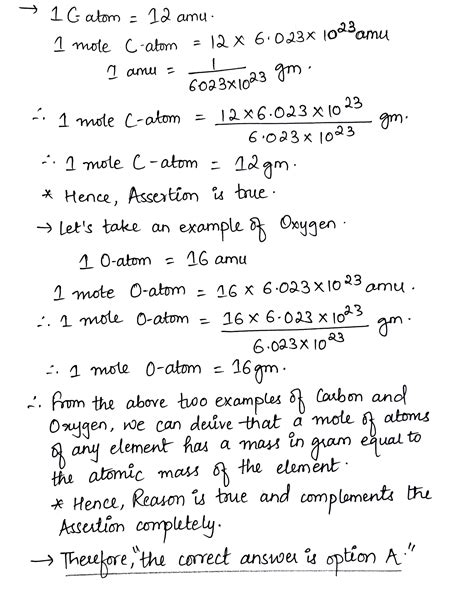 → 1 C atom = 12 amu.
1 mole C-atom = 12 × 6.023 × 10²³ amu
1 amu = 1/6023×10²³ gm.
∴ 1 mole C-atom = 12×6.023×10²³/6.023×10²³ gm.
∴ 1 mole C-atom = 12gm.
* Hence, Assertion is true.
→ Let's take an example of Oxygen.
1 O-atom = 16 amu
1 mole O-atom = 16 × 6.023×10²³ amu.
∴ 1 mole O-atom = 16 × 6.023 × 10²³/6.023×10²³ gm.
∴ 1 mole O-atom = 16gm.
∴ From the above two examples of Carbon and
Oxygen, we can derive that a mole of atoms
of any element has a mass in gram equal to
the atomic mass of the element.
* Hence, Reason is true and complements the
Assertion completely.
→ Therefore, "the correct answer is option A."